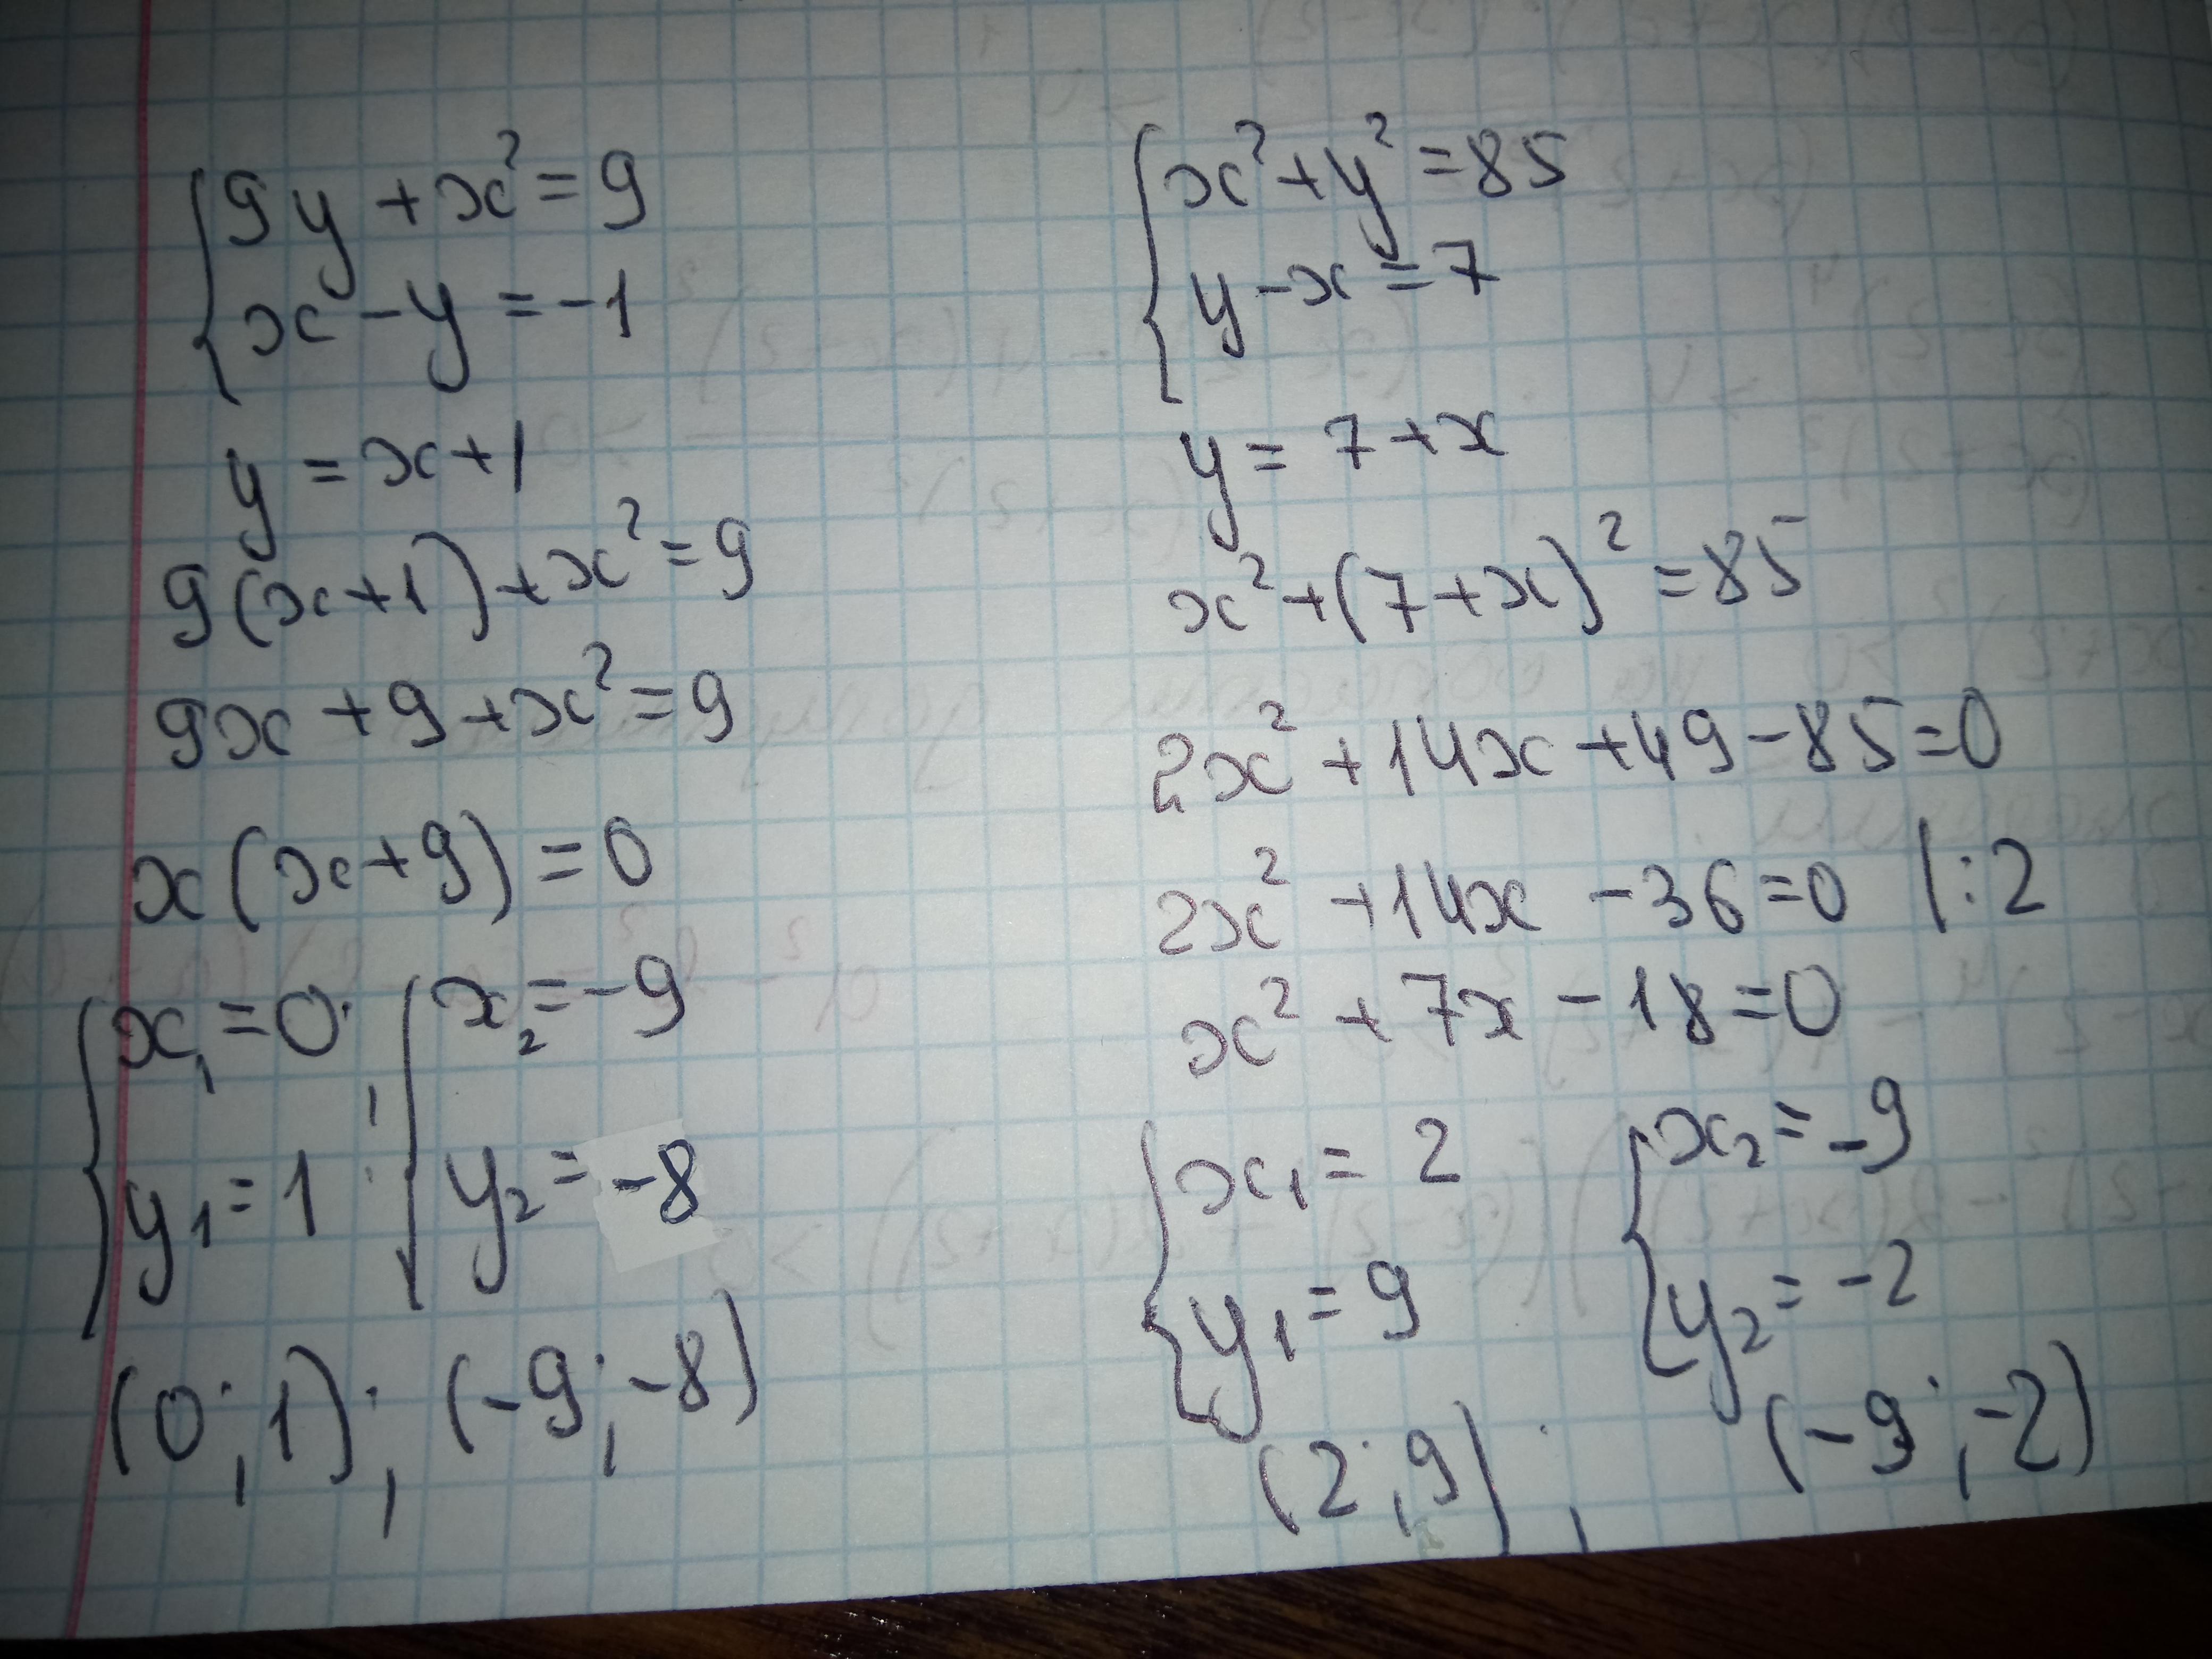 9y + x² = 9
x - y = -1
y = x + 1
9(x+1) + x² = 9
9x + 9 + x² = 9
x(x+9) = 0
x₁ = 0; x₂ = -9
y₁ = 1; y₂ = -8
(0; 1); (-9; -8)
x² + y² = 85
y - x = 7
y = 7 + x
x² + (7 + x)² = 85
2x² + 14x + 49 - 85 = 0
2x² + 14x - 36 = 0 |:2
x² + 7x - 18 = 0
x₁ = 2 x₂ = -9
y₁ = 9 y₂ = -2
(2; 9); (-9; -2)